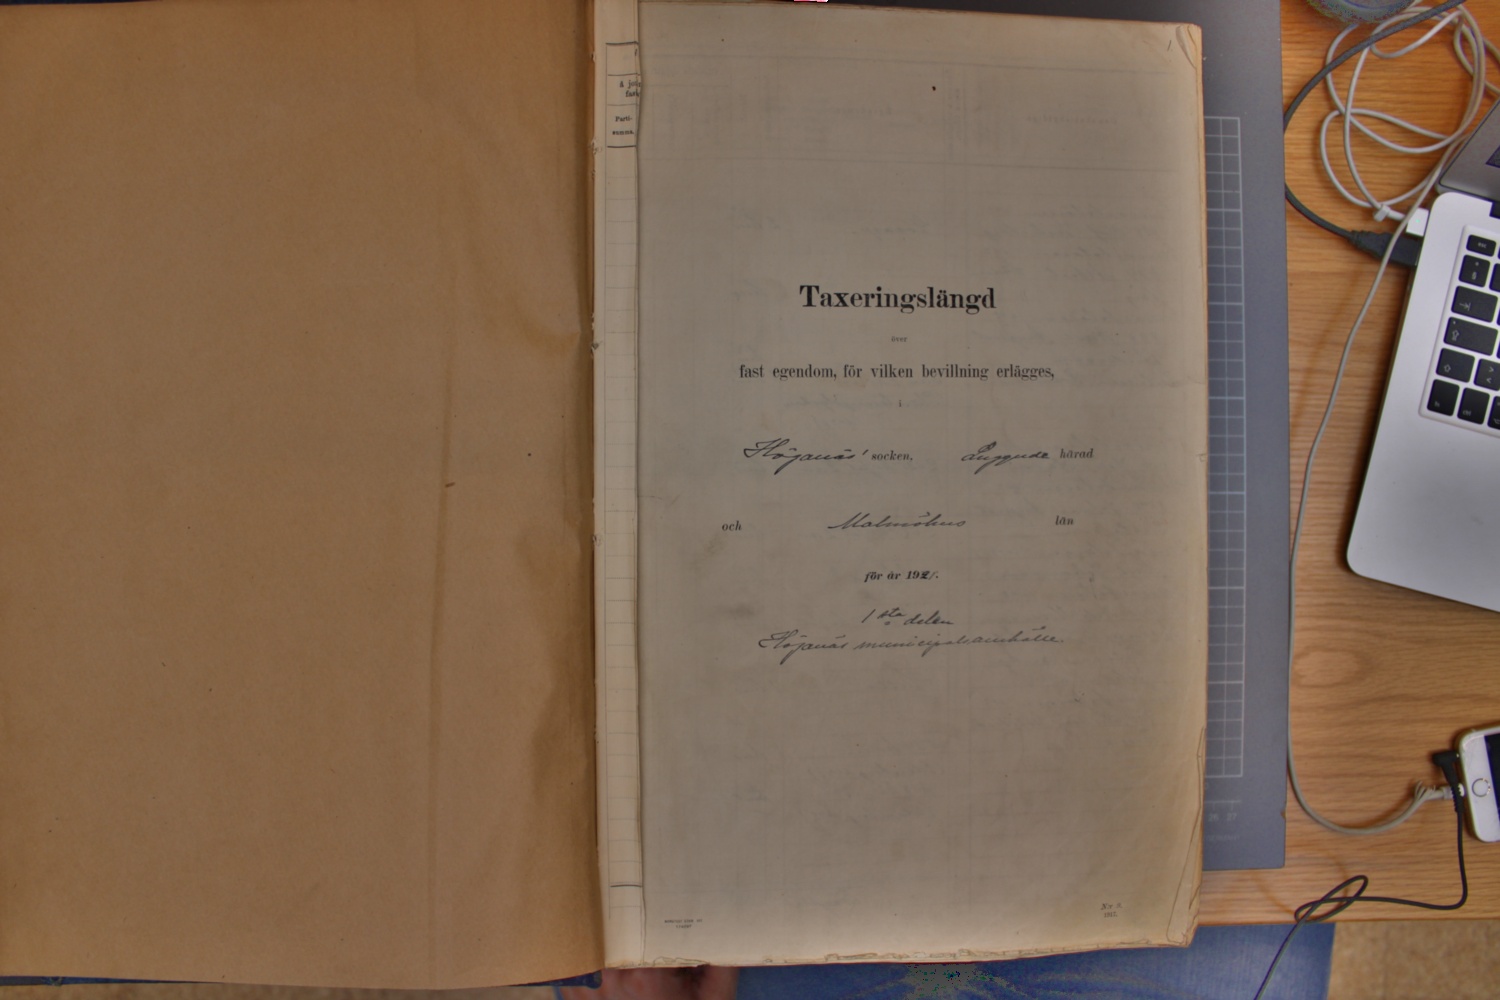 1
Taxeringslängd
över
fast egendom, för vilken bevillning erlägges,
i
Höganäs' socken, Luggude härad
och Malmöhus län
för år 1921.
1sta delen
Höganäs municipalsamhälle.
N:r 9.
Parti-
summa.